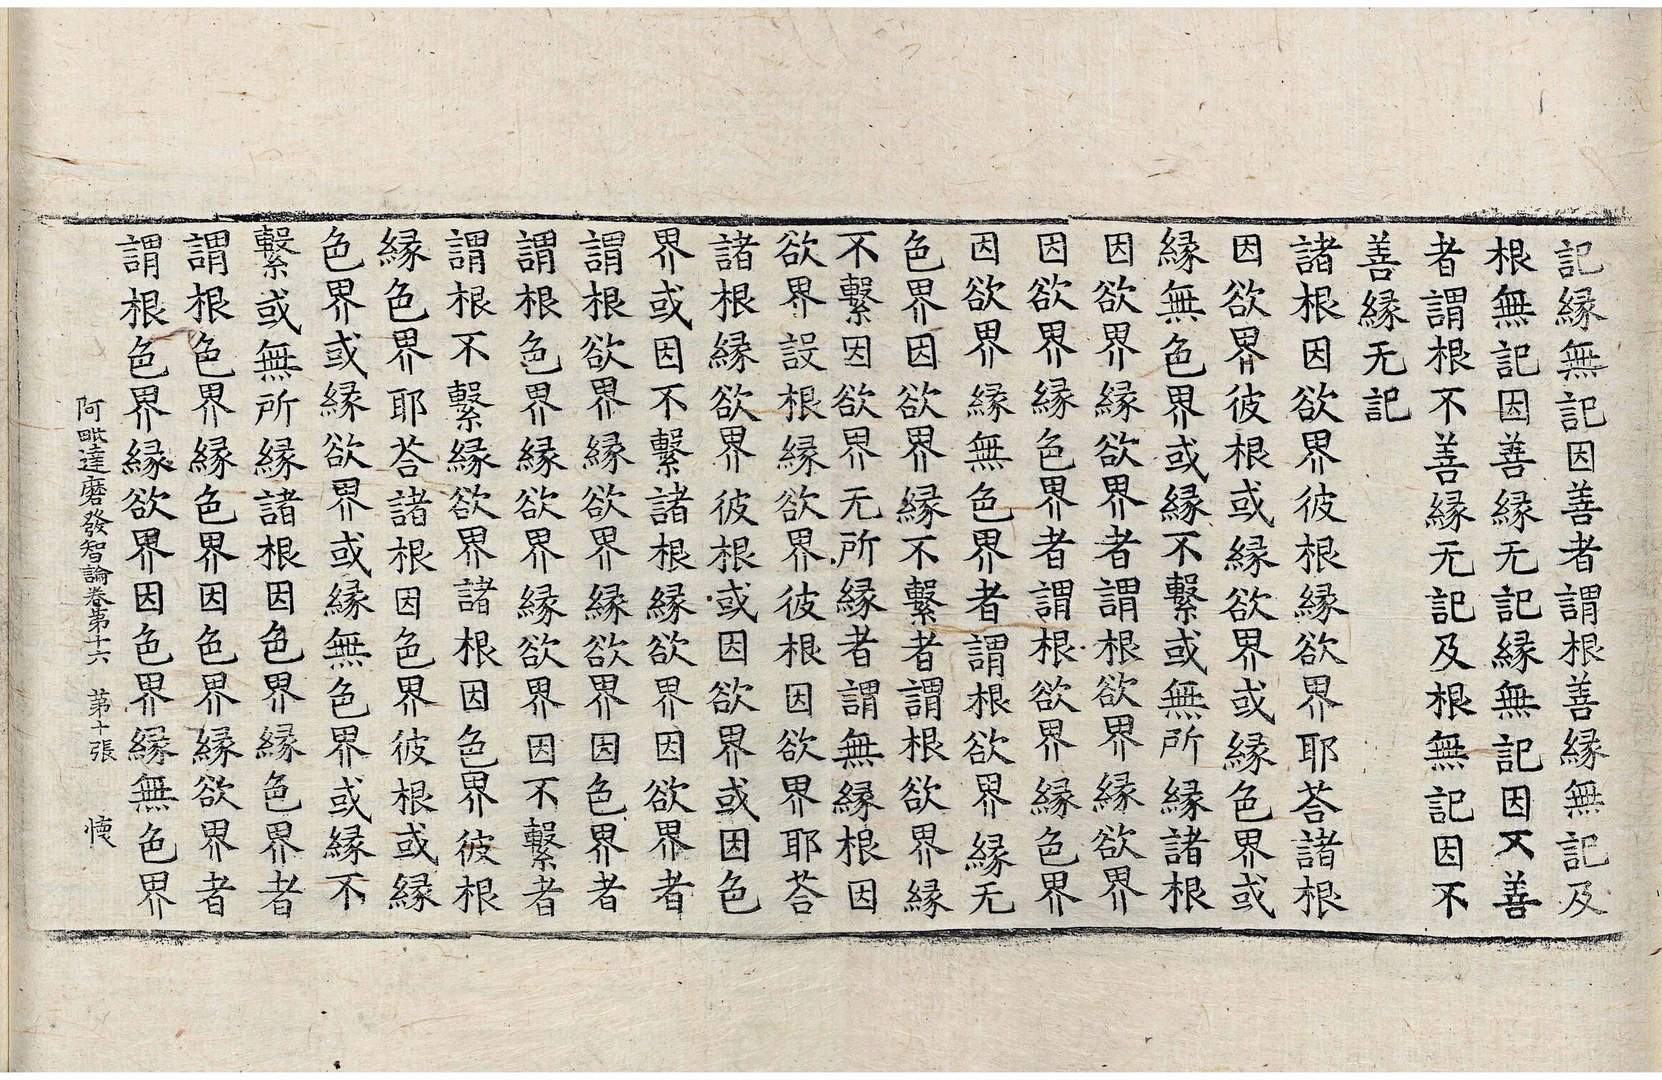 記縁無記因善者謂根善縁無記及
根無記因善縁无記縁無記因不善
者謂根不善縁无記及根無記因不
善縁无記
諸根因欲界彼根縁欲界耶荅諸根
因欲界彼根或縁欲界或縁色界或
縁無色界或縁不繫或無所縁諸根
因欲界縁欲界者謂根欲界縁欲界
因欲界縁色界者謂根欲界縁色界
因欲界縁無色界者謂根欲界縁无
色界因欲界縁不繫者謂根欲界縁
不繫因欲界无所縁者謂無縁根因
欲界設根縁欲界彼根因欲界耶荅
諸根縁欲界彼根或因欲界或因色
界或因不繫諸根縁欲界因欲界者
謂根欲界縁欲界縁欲界因色界者
謂根色界縁欲界縁欲界因不繫者
謂根不繫縁欲界諸根因色界彼根
縁色界耶荅諸根因色界彼根或縁
色界或縁欲界或縁無色界或縁不
繫或無所縁諸根因色界縁色界者
謂根色界縁色界因色界縁欲界者
謂根色界縁欲界因色界縁無色界
阿毗達磨發智論卷第十六 第十張 懐